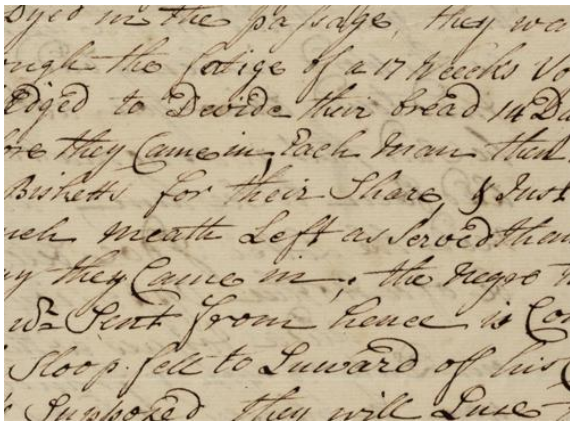 Dyed in the passage, they wa
ough the fatige of a 17 Weeks Vo
edged to Devide their bread 14 Da
ore they Came in, Each man then
Bisketts for their Share, & Just
uch meath Left as Served tham
ay they Came in, the Negro
Sent from hence is Con
Sloop fell to Luward of his
Supposed they will Luse